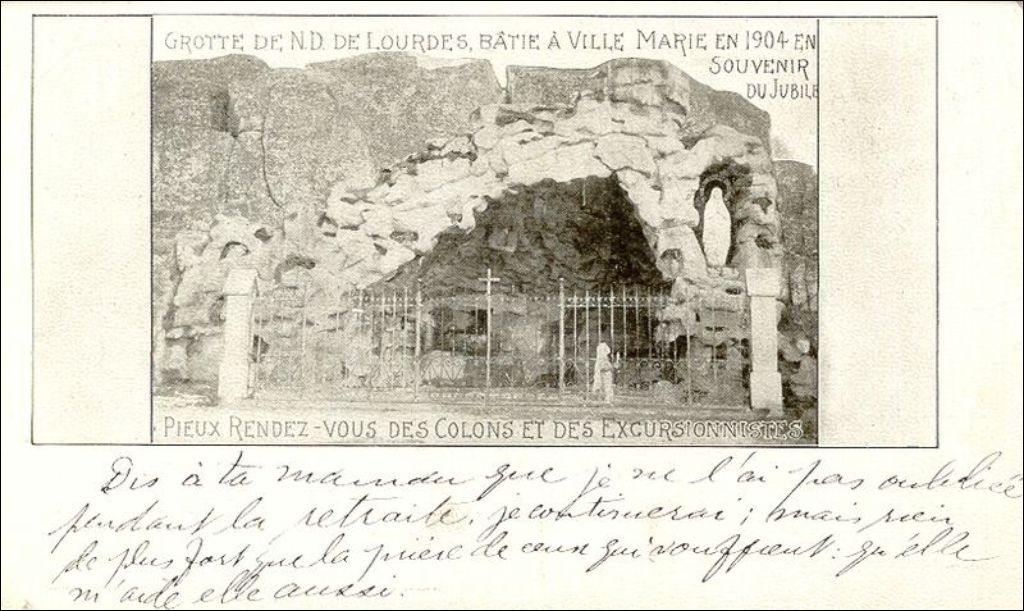 GROTTE DE N.D. DE LOURDES, BÂTIE À VILLE MARIE EN 1904 EN
SOUVENIR
DU JUBILÉ
PIEUX RENDEZ-VOUS DES COLONS ET DES EXCURSIONNISTES
Dis à ta maman que je ne l'ai pas oubliée
pendant la retraite, je continuerai; mais rien
de plus fort que la prière de ceux qui souffrent: qu'elle
m'aide elle aussi.